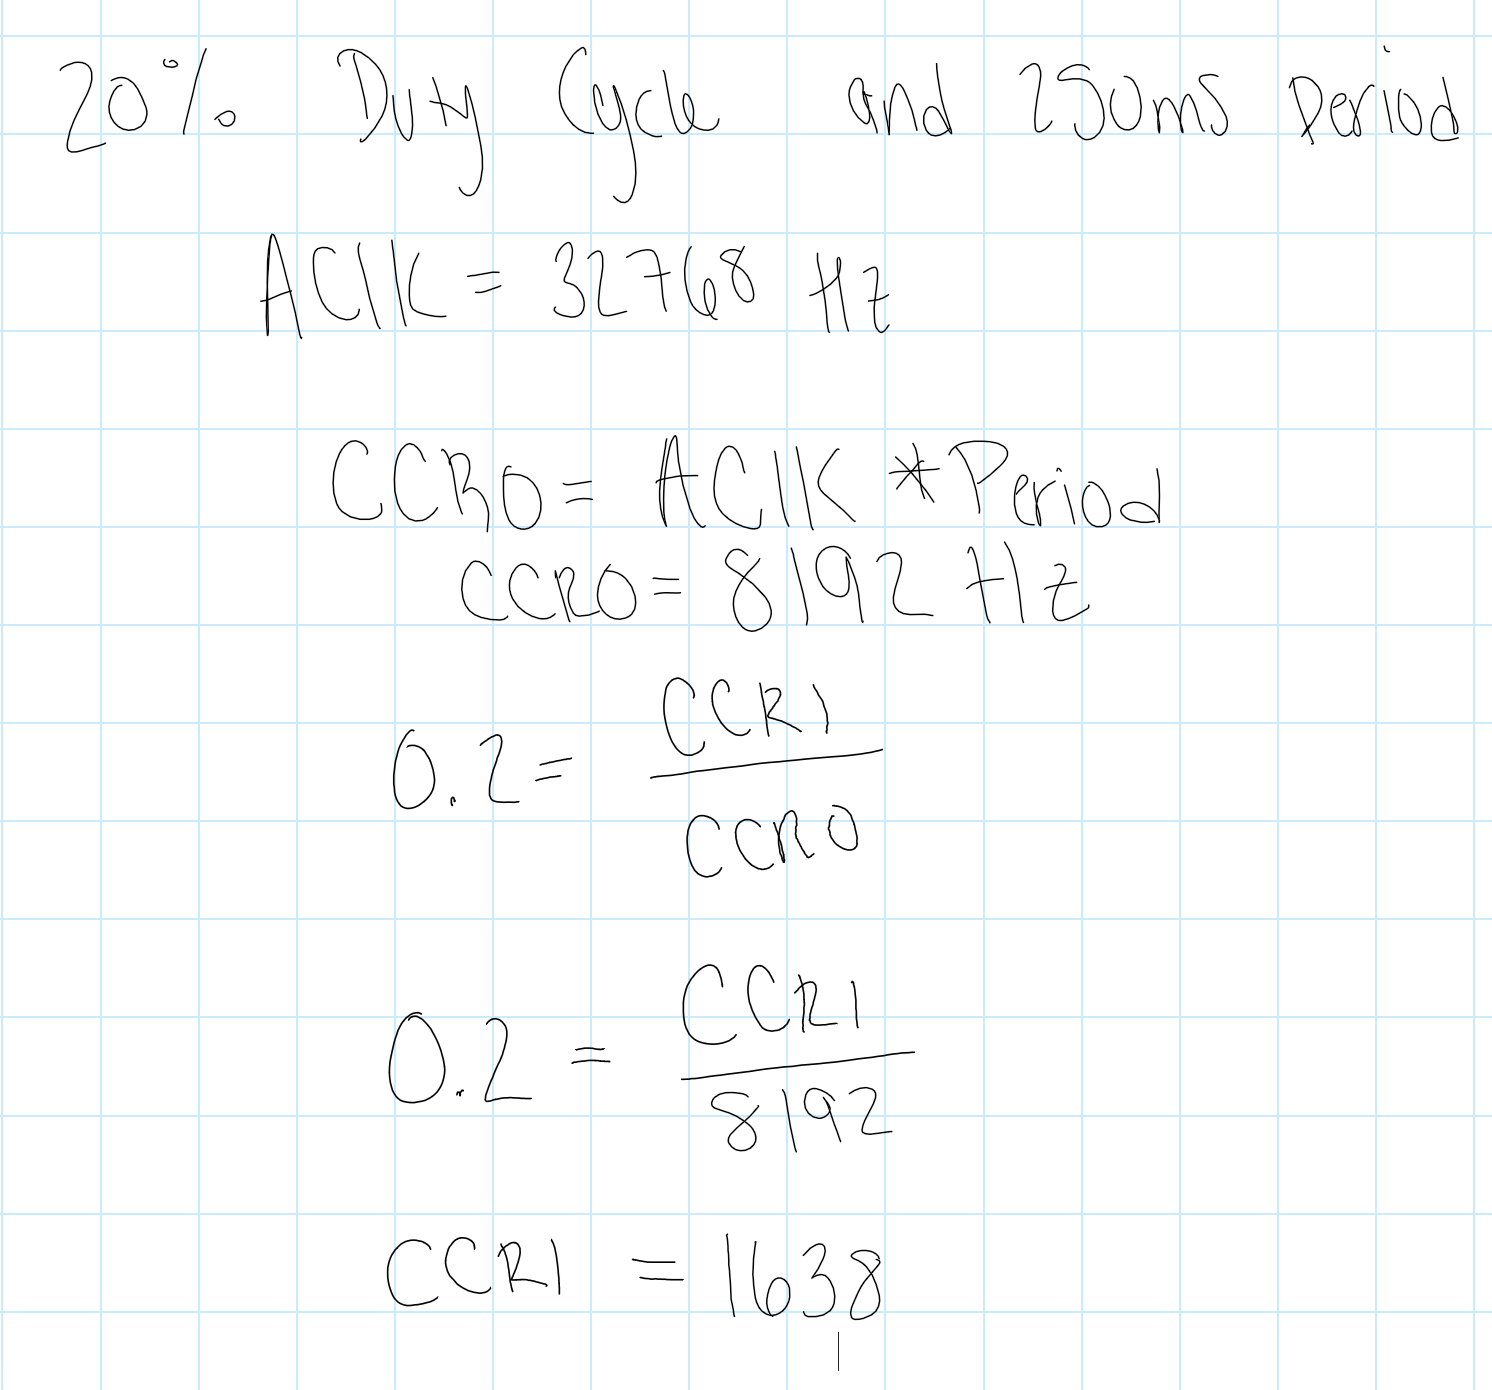 20% Duty Cycle and 250ms Period
AClK = 32768 Hz
CCR0 = AClK * Period
CCR0 = 8192 Hz
0.2 = CCR1
CCR0
0.2 = CCR1
8192
CCR1 = 1638